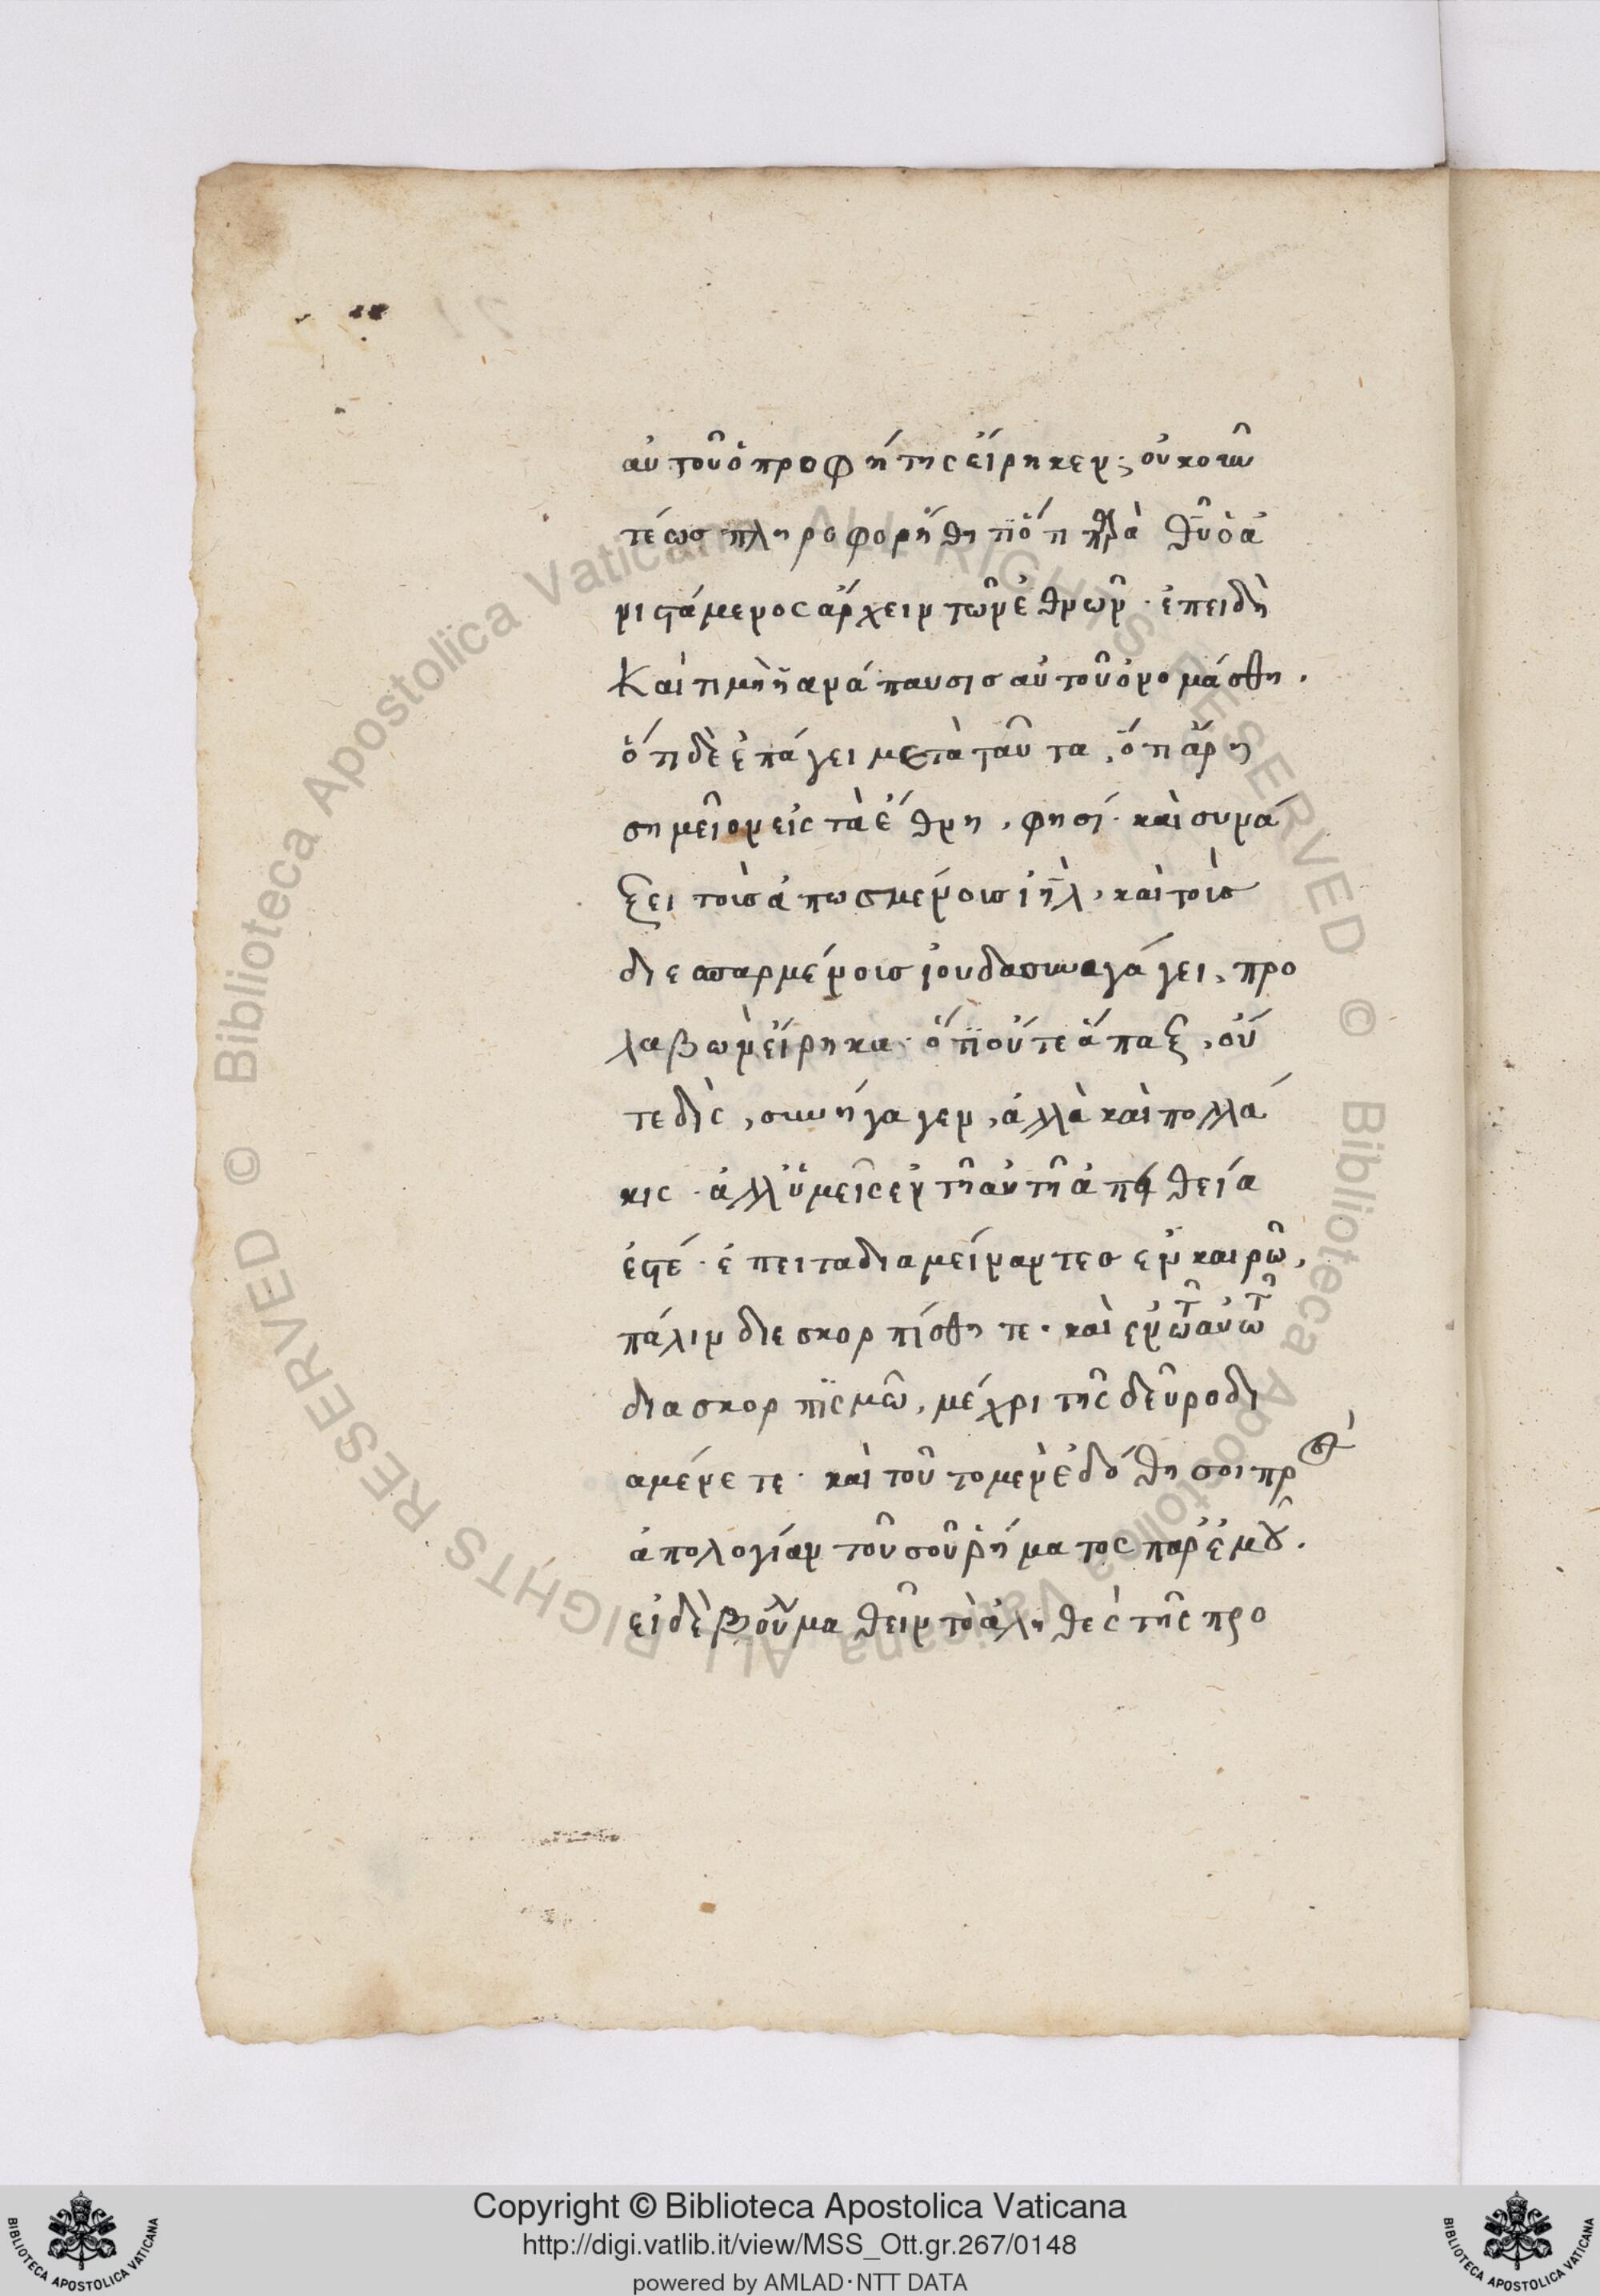 αὐτοῦ ὁ προφήτης εἴρηκεν; οὐκοῦν
τέως πληροφορήθητι ὅτι θ̅υ̅ ὁ ἀ
νιστάμενος ἄρχειν τῶν ἐθνῶν· ἐπειδὴ
καὶ τιμὴ ἡ ἀνάπαυσις αὐτοῦ ὀνομάσθη.
ὅτι δὲ ἐπάγει μετὰ ταῦτα, ὅτι ἄρῃ
σημεῖον εἰς τὰ ἔθνη, φησί· καὶ συνά
ξει τοὺς ἀπωσμένους ι̅η̅λ̅, καὶ τοὺς
διεσπαρμένους ἰουδα συναγάγει, προ
λαβὼν εἴρηκα· ὅτι οὔτε ἅπαξ, οὔ
τε δὶς, συνήγαγεν, ἀλλὰ καὶ πολλά
κις· ἀλλ' ὑμεῖς ἐν τῇ αὐτῇ ἀπειθεία
ἐστέ· ἔπειτα διαμείναντες ἐν καιρῶ,
πάλιν διεσκορπίσθητε· καὶ ἐν τῶ αὐτῶ
διασκορπισμῶ, μέχρι τῆς δεῦρο δι
αμένετε· καὶ τοῦτο μὲν ἐδόθη σοι πρὸς
ἀπολογίαν τοῦ σοῦ ῥήματος παρ' ἐμοῦ.
εἰ δὲ βούλει μαθεῖν τὸ ἀληθὲς τῆς προ
Copyright © Biblioteca Apostolica Vaticana
http://digi.vatlib.it/view/MSS_Ott.gr.267/0148
powered by AMLAD·NTT DATA